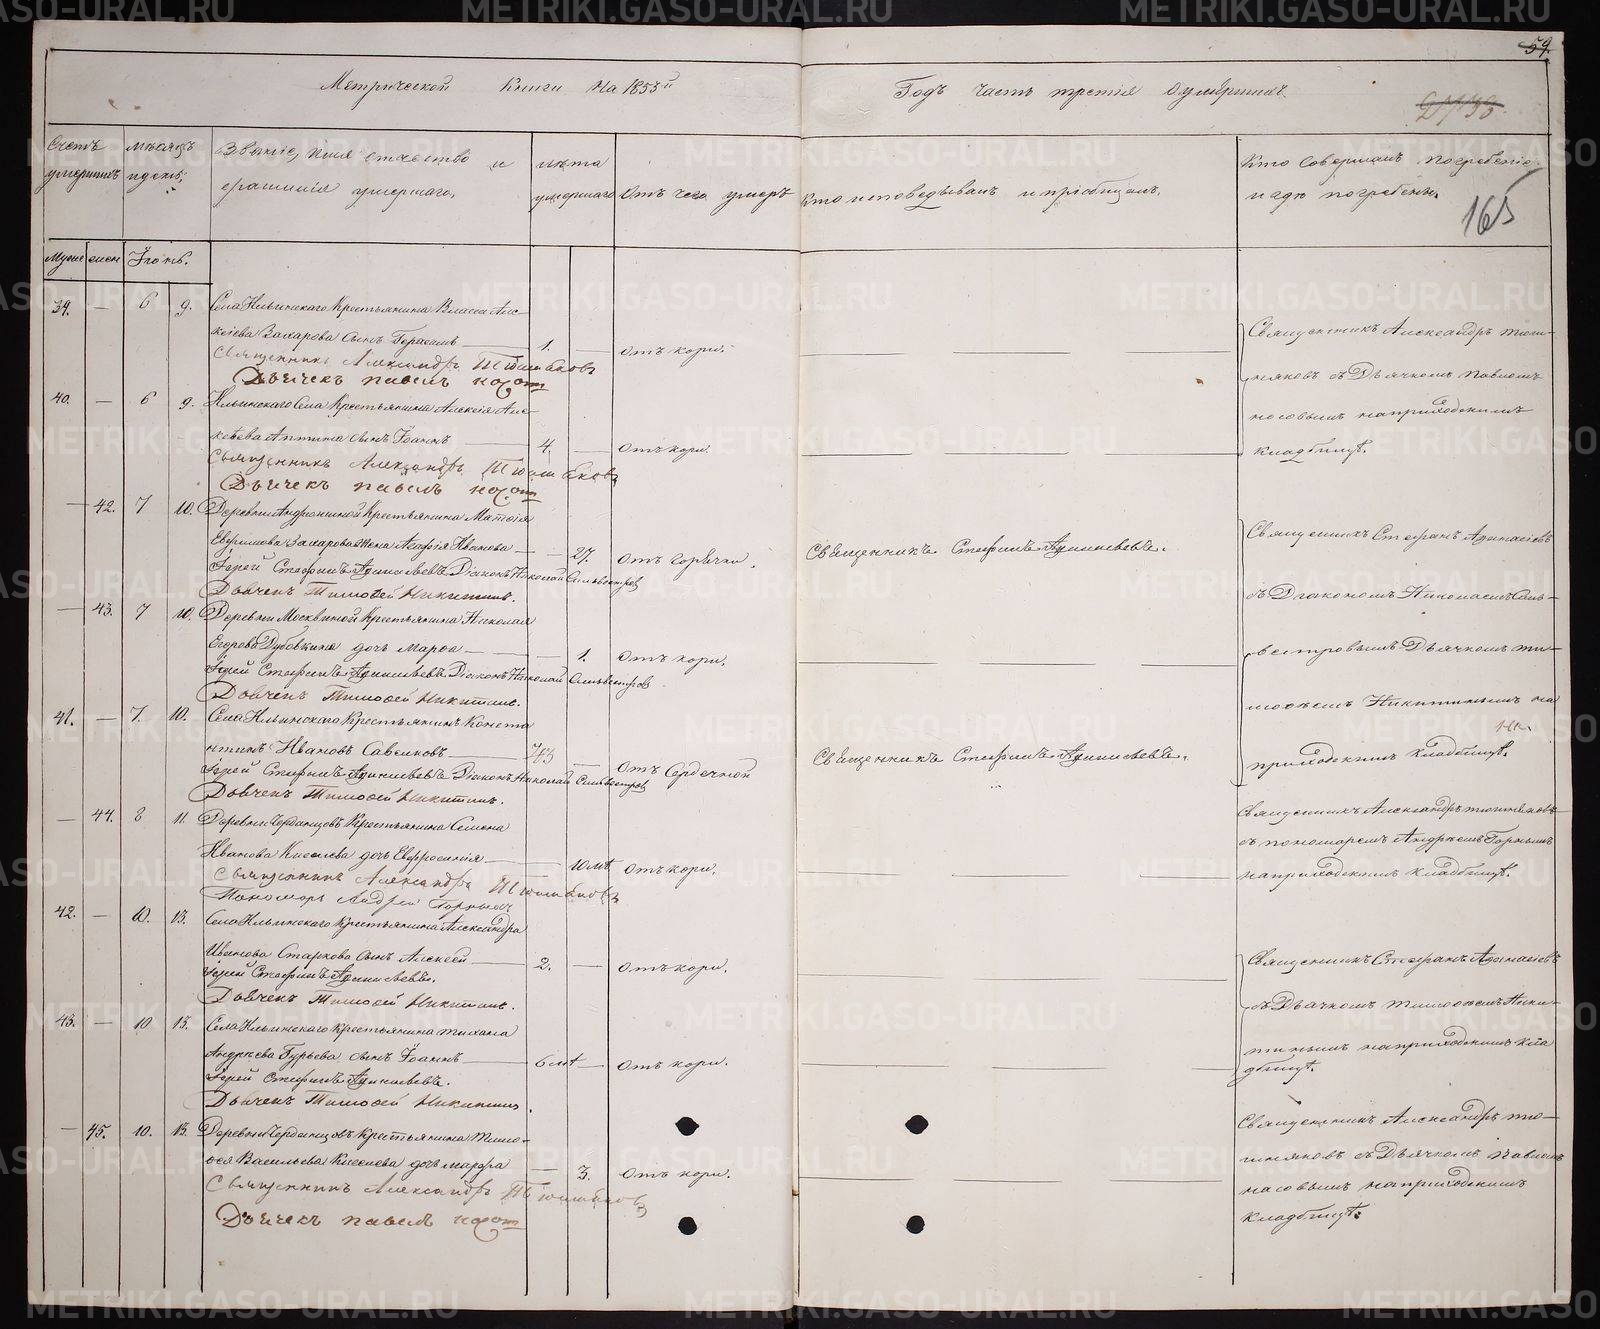 59.
Метрической Книги на 1853й Годъ часть третія Оумершихъ
165
Счетъ умершихъ
Мѣсяцъ и день
Званіе, имя отчество и фамилія умершаго.
лѣта умершаго
Отъ чего умеръ
Кто исповѣдывалъ и пріобщалъ.
Кто совершалъ погребеніе и гдѣ погребены.
Муж жен Іюнь.
39. — 6 9. Села Ильинскаго Крестьянина Власа Але-
ксіева Захарова сынъ Герасимъ — 1. — отъ кори.
Священникъ Александръ Тюшняковъ
Дьячекъ Павелъ
Священникъ Александръ Тюш-
няковъ съ Дьячкомъ Павломъ
носовымъ на приходскомъ
кладбищѣ.
40. — 6 9. Ильинскаго Села Крестьянина Алексія Але-
ксѣева сынъ Іоаннъ — 4. — Отъ кори.
Священникъ Александръ Тюшняковъ
Дьячекъ Павелъ
— 42. 7 10. Деревни Крестьянина Матѳія
Евфимова Захарова жена Агафія Иванова — 27. Отъ горячки. Священникъ Стефанъ Аѳанасьевъ.
Іерей Стефанъ Аѳанасьевъ Діаконъ Николай Сильвестровъ
Дьячекъ Тимоѳей Никитинъ.
Священникъ Стефанъ Аѳанасіевъ
съ Діакономъ Николаемъ Силь-
вестровымъ Дьячкомъ Ти-
моѳеемъ Никитинымъ на
приходскомъ кладбищѣ.
— 43. 7 10. Деревни Москвиной Крестьянина Николая
Егорова Дубовкина дочь Марѳа — 1. Отъ кори.
Іерей Стефанъ Аѳанасьевъ Діаконъ Николай Сильвестровъ
Дьячекъ Тимоѳей Никитинъ.
41. — 7. 10. Села Ильинскаго Крестьянинъ Конста
нтинъ Ивановъ — — Отъ Сердечной Священникъ Стефанъ Аѳанасьевъ.
Іерей Стефанъ Аѳанасьевъ Діаконъ Николай Сильвестровъ
Дьячекъ Тимоѳей Никитинъ.
— 44. 8 11. Деревни Черданцовъ Крестьянина Семена
Иванова Киселева дочь Евфросинія — 10 мѣ Отъ кори.
Священникъ Александръ Тюшняковъ
Пономарь Андрей Горныхъ
Священникъ Александръ тюшняковъ
съ пономаремъ Андреемъ Горнымъ
на приходскомъ кладбищѣ.
42. — 10. 13. Села Ильинскаго Крестьянина Александра
Иванова Старкова сынъ Алексей — 2. — Отъ кори.
Іерей Стефанъ Аѳанасьевъ.
Дьячекъ Тимоѳей Никитинъ.
Священникъ Стефанъ Аѳанасіевъ
съ Дьячкомъ Тимоѳеемъ Ники-
тинымъ на приходскомъ кла
дбищѣ.
43. — 10 13. Села Ильинскаго Крестьянина тихана
Андреева Гурьева сынъ Іоаннъ — 6 мѣ — Отъ кори.
Іерей Стефанъ Аѳанасьевъ.
Дьячекъ Тимоѳей Никитинъ.
— 45. 10. 13. Деревни Черданцовъ Крестьянина Тимо-
ѳея Васильева Киселева дочь марфа — 3. Отъ кори.
Священникъ Александръ Тюшняковъ
Дьячекъ Павелъ
Священникъ Александръ тю-
шняковъ съ Дьячкомъ Павломъ
насовымъ на приходскомъ
кладбищѣ.
METRIKI.GASO-URAL.RU